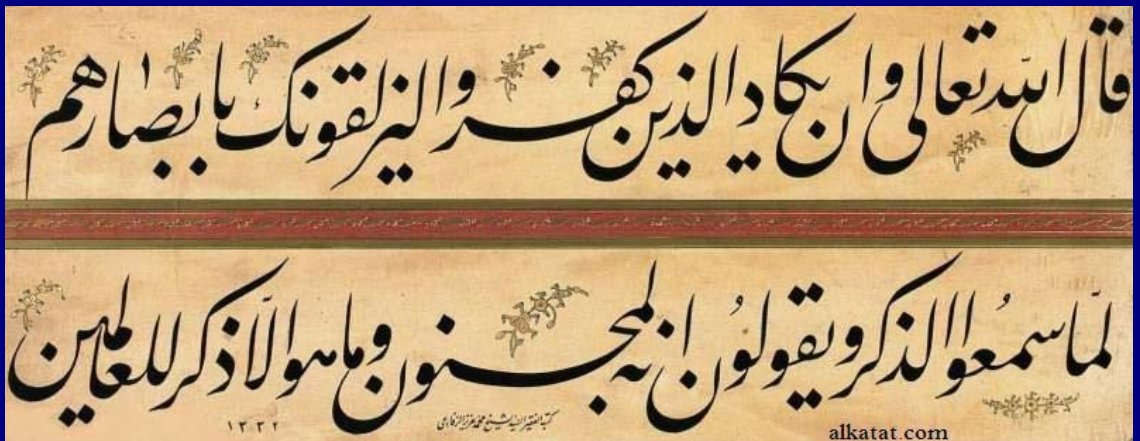 قال الله تعالى وان يكاد الذين كفروا ليزلقونك بابصارهم
لمّا سمعُوا الذكر ويقولُون انه لمجنون وما هو الّا ذكر للعالمين
كتبه الفقير السيد الشيخ محمد عزيز الرفاعي
١٣٣٢
alkatat.com